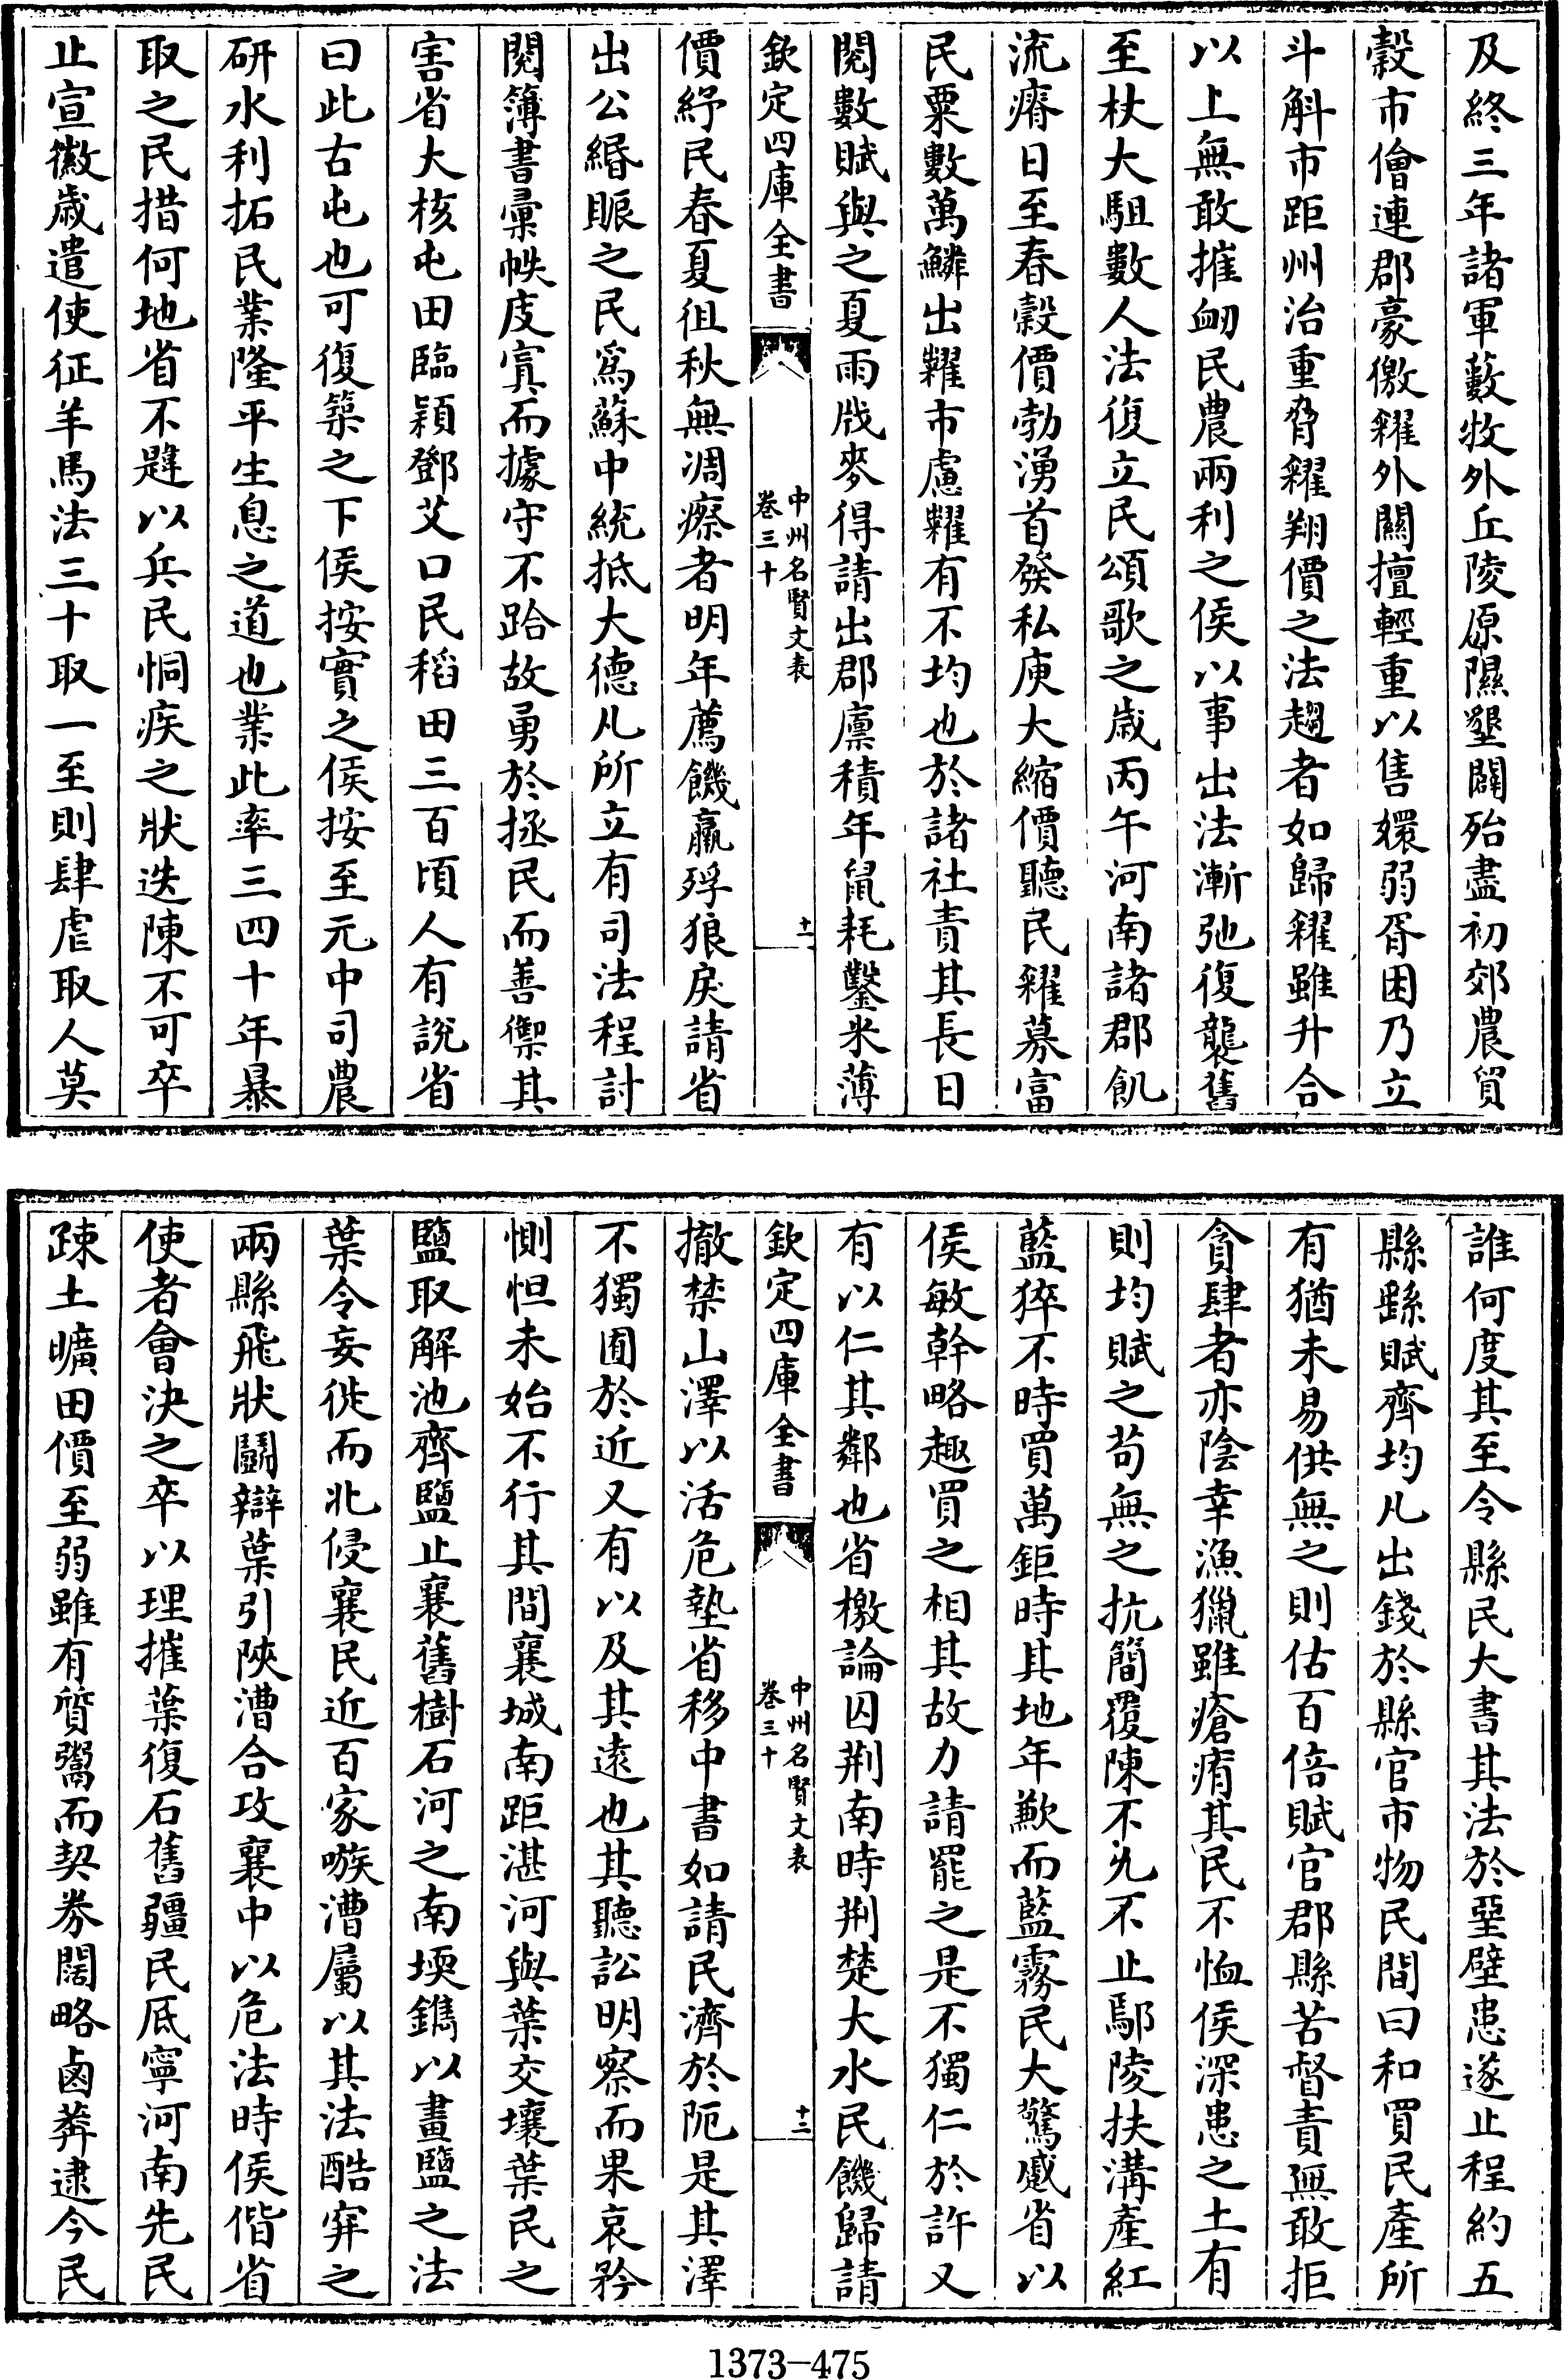 及終三年諸軍藪牧外丘陵原隰墾闢殆盡初郊農貿
穀市儈連郡豪徼糴外闗擅輕重以售嬛弱胥困乃立
斗斛市距州治重脅糴翔價之法趨者如歸糴雖升合
以上無敢摧衂民農兩利之侯以事出法漸弛復襲舊
至杖大駔數人法復立民頌歌之歲丙午河南諸郡飢
流瘠日至春穀價勃湧首發私庾大縮價聽民糴募富
民粟數萬鱗出糶市慮糶有不均也於諸社責其長日
閱數賦與之夏雨戕麥得請出郡廩積年䑕耗鑿米薄
欽定四庫全書
中州名賢文表
卷三十
十一
價紓民春夏徂秋無凋瘵者明年薦饑羸殍狼戾請省
出公緡賑之民爲蘇中統抵大德凡所立有司法程討
閱簿書彚帙庋寘而據守不跲故勇於拯民而善禦其
害省大核屯田臨潁鄧艾口民稻田三百頃人有説省
曰此古屯也可復築之下侯按實之侯按至元中司農
研水利拓民業隆平生息之道也業此率三四十年暴
取之民措何地省不韙以兵民恫疾之狀迭陳不可卒
止宣徽歲遣使征羊馬法三十取一至則肆虐取人莫
誰何度其至令縣民大書其法於堊壁患遂止程約五
縣繇賦齊均凡出錢於縣官市物民間曰和買民產所
有猶未易供無之則估百倍賦官郡縣苦督責無敢拒
貪肆者亦陰幸漁獵雖瘡痏其民不恤侯深患之土有
則均賦之苟無之抗簡覆陳不允不止鄢陵扶溝產紅
藍猝不時買萬鉅時其地年歉而藍霧民大驚慼省以
侯敏幹略趣買之相其故力請罷之是不獨仁於許又
有以仁其鄰也省檄論囚荆南時荆楚大水民饑歸請
欽定四庫全書
中州名賢文表
卷三十
十二
撤禁山澤以活危墊省移中書如請民濟於阨是其澤
不獨囿於近又有以及其逺也其聽訟明察而果哀矜
惻怛未始不行其間襄城南距湛河與葉交壤葉民之
鹽取解池齊鹽止襄舊樹石河之南堧鐫以畫鹽之法
葉令妄徙而北侵襄民近百家嗾漕屬以其法酷穽之
兩縣飛狀鬬辯葉引陜漕合攻襄中以危法時侯偕省
使者會決之卒以理摧葉復石舊疆民厎寧河南先民
疎土曠田價至弱雖有質鬻而契券闊略鹵莾逮今民
1373-475